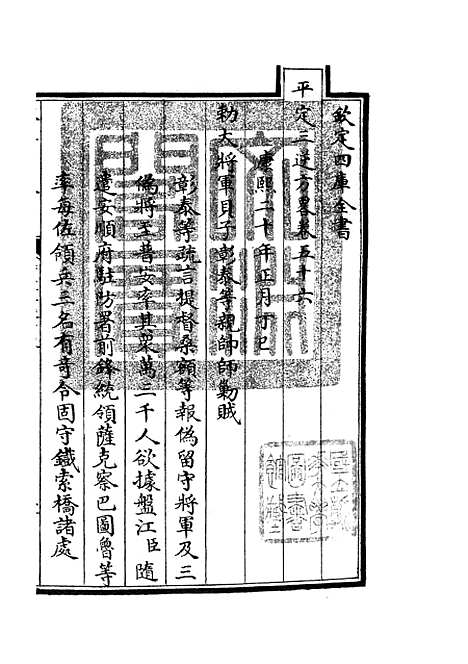 欽定四庫全書
平定三逆方畧卷五十六
康熙二十年正月丁巳
勅大將軍貝子彰泰等親帥師勦賊
彰泰等疏言提督桑額等報偽留守將軍及三
偽將王普安率其衆萬二千人欲據盤江臣隨
遣安順府駐防署前鋒統領薩克察巴圖魯等
率每伍領兵三名有竒令固守鐵索橋諸處